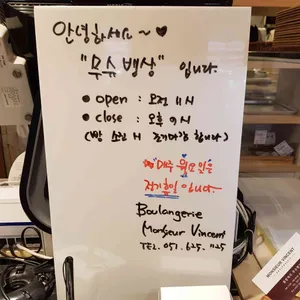 안녕하세요~♥
"무슈뱅상" 입니다.
● open : 오전 11시
● close : 오후 9시
(빵 소진시 조기마감 합니다)
매주 월요일은
정기휴일 입니다.
Boulangerie
Monsieur Vincent
TEL. 051. 625. 1125
MONSIEUR VINCENT